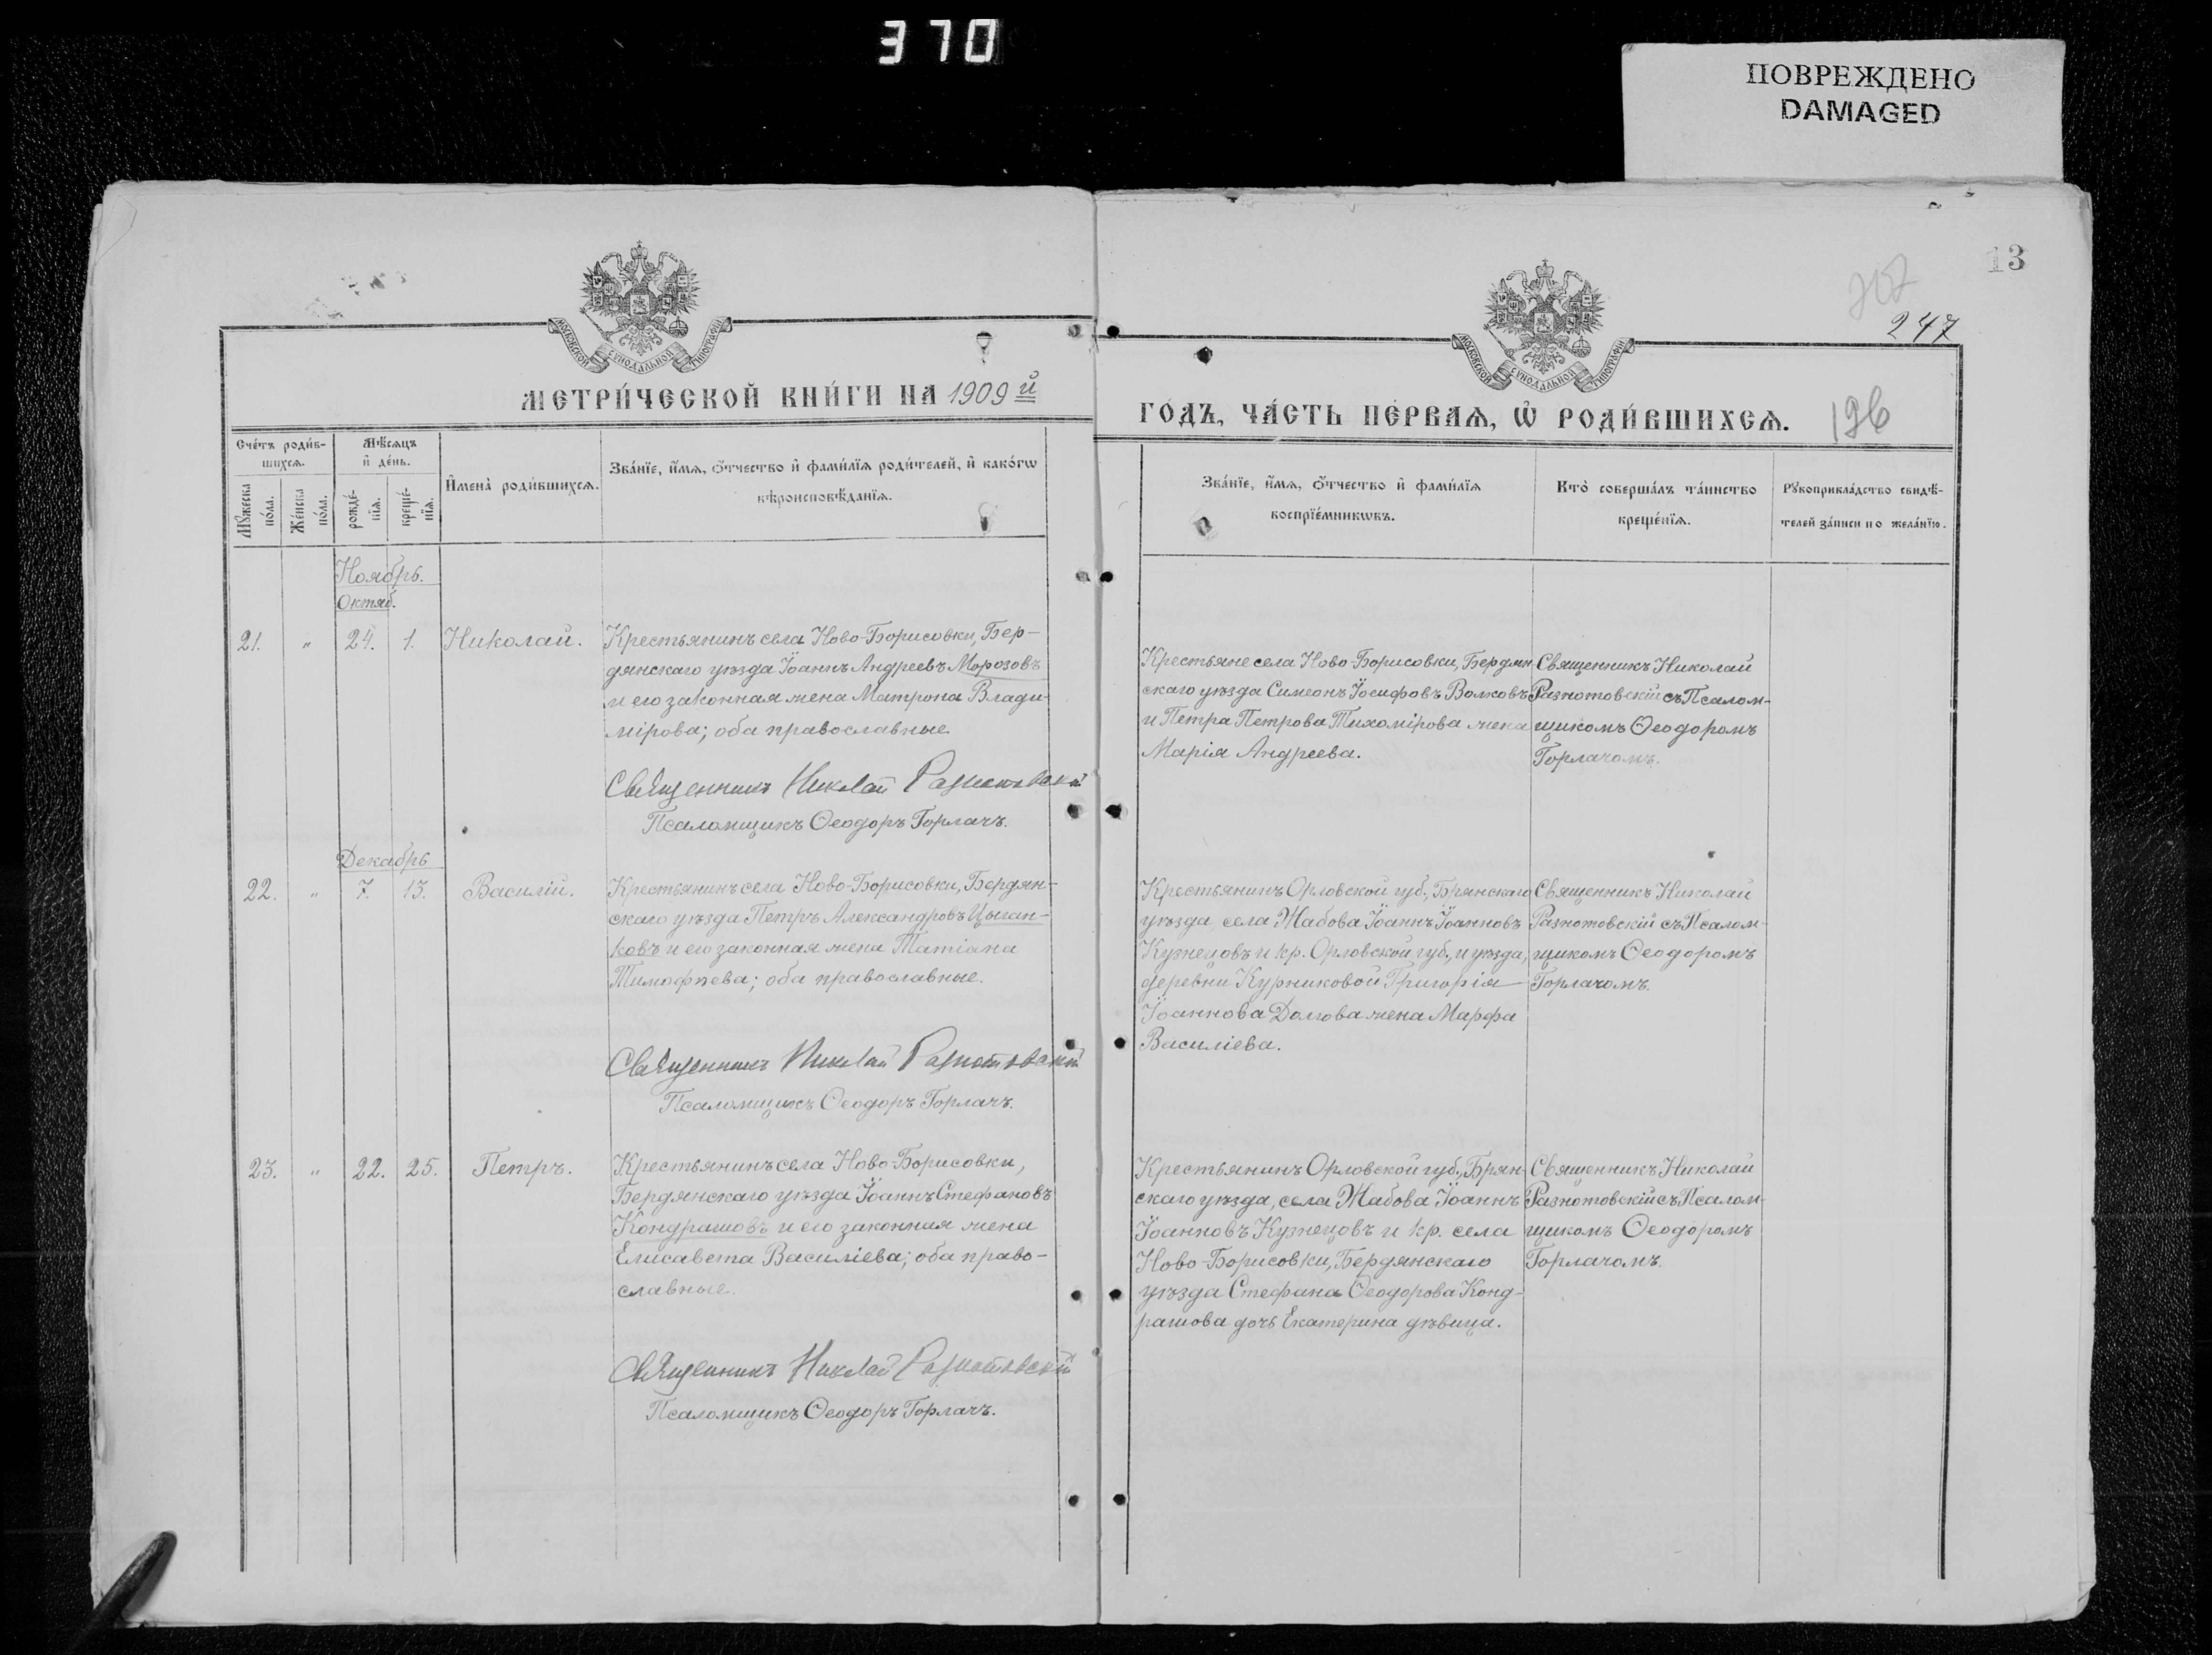 370
ПОВРЕЖДЕНО
DAMAGED
13
247
МОСКОВСКОЙ СѴНОДАЛЬНОЙ ТИПОГРАФІИ
МОСКОВСКОЙ СѴНОДАЛЬНОЙ ТИПОГРАФІИ
МЕТРИ́ЧЕСКОЙ КНИ́ГИ НА 1909 й
ГО́ДЪ, ЧА́СТЬ ПЕ́РВАѦ, Ѽ РОДИ́ВШИХСѦ. 196
Сче́тъ роди́в-
шихсѧ.
Мѣ́сѧцъ
и҆ де́нь.
Мꙋ́жеска
по́ла.
Же́нска
по́ла.
рожде́-
нїѧ.
креще́-
нїѧ.
И҆мена̀ роди́вшихсѧ.
Зва́нїе, и҆́мѧ, ѻ҆́тчество и҆ фами́лїѧ роди́телей, и҆ како́гѡ
вѣроисповѣ́данїѧ.
Зва́нїе, и҆́мѧ, ѻ҆́тчество и҆ фами́лїѧ
воспрїе́мникѡвъ.
Кто̀ соверша́лъ та́инство
креще́нїѧ.
Рꙋкоприкла́дство свидѣ́-
телей за́писи по жела́нїю.
Ноябрь.
Октяб.
21. " 24. 1. Николай.
Крестьянинъ села Ново-Борисовки, Бер-
дянскаго уѣзда Іоаннъ Андреевъ Морозовъ
и его законная жена Матрона Влади-
мірова; оба православные.
Священникъ Николай Разнотовскій
Псаломщикъ Ѳеодоръ Горлачъ.
Крестьяне села Ново-Борисовки, Бердян
скаго уѣзда Симеонъ Іосифовъ Волковъ
и Петра Петрова Тихомірова жена
Марія Андреева.
Священникъ Николай
Разнотовскій съ Псалом-
щикомъ Ѳеодоромъ
Горлачомъ.
Декабрь
22. " 7. 13. Василій.
Крестьянинъ села Ново-Борисовки, Бердян-
скаго уѣзда Петръ Александровъ Цыган-
ковъ и его законная жена Татіана
Тимофѣева; оба православные.
Священникъ Николай Разнотовскій
Псаломщикъ Ѳеодоръ Горлачъ.
Крестьянинъ Орловской губ., Брянскаго
уѣзда, села Жабова Іоаннъ Іоанновъ
Кузнецовъ и кр. Орловской губ., и уѣзда,
деревни Курниковой Григорія
Іоаннова Долгова жена Марфа
Василіева.
Священникъ Николай
Разнотовскій съ Псалом-
щикомъ Ѳеодоромъ
Горлачомъ.
23. " 22. 25. Петръ.
Крестьянинъ села Ново-Борисовки,
Бердянскаго уѣзда Іоаннъ Стефановъ
Кондрашовъ и его законная жена
Елисавета Василіева; оба право-
славные.
Священникъ Николай Разнотовскій
Псаломщикъ Ѳеодоръ Горлачъ.
Крестьянинъ Орловской губ., Брян-
скаго уѣзда, села Жабова Іоаннъ
Іоанновъ Кузнецовъ и кр. села
Ново-Борисовки, Бердянскаго
уѣзда Стефана Ѳеодорова Конд-
рашова дочь Екатерина дѣвица.
Священникъ Николай
Разнотовскій съ Псалом-
щикомъ Ѳеодоромъ
Горлачомъ.